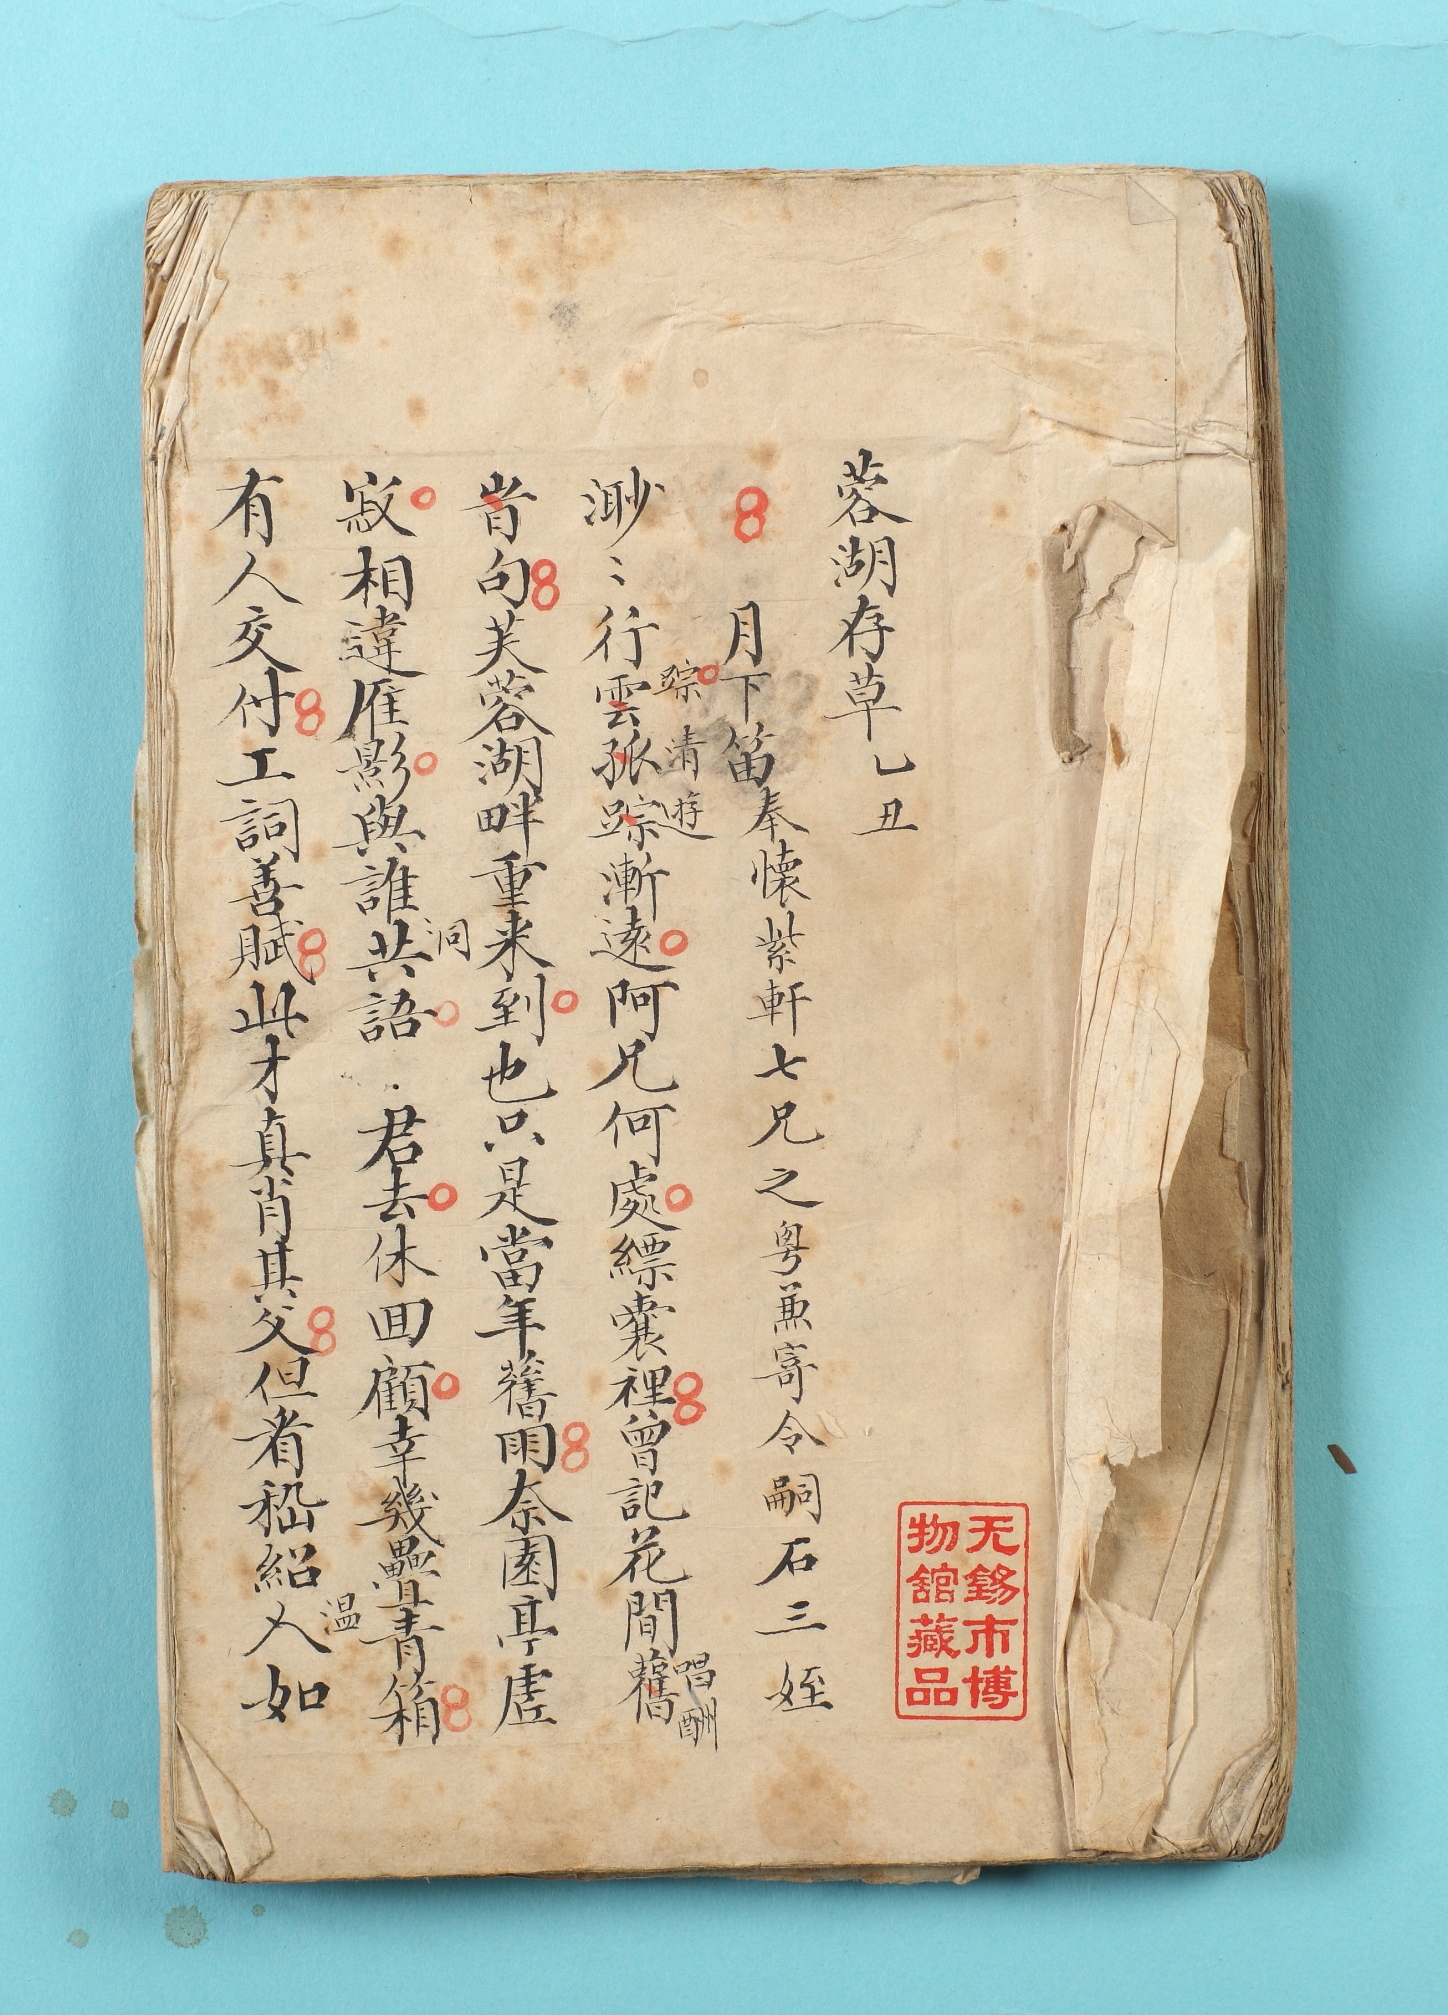 蓉湖存草 乙丑
月下笛 奉懷紫軒七兄之粤兼寄令嗣石三姪
渺〻行雲孤踪漸遠阿兄何處縹囊裡曾記花間舊
踪清遊
唱酬
昔句芙蓉湖畔重来到也只是當年舊雨奈園亭虛
寂相違雁影與誰共語君去休回顧幸幾疊青箱
洞
温
有人交付工詞善賦此才真肖其父但看嵇紹人如
无錫市博
物館藏品